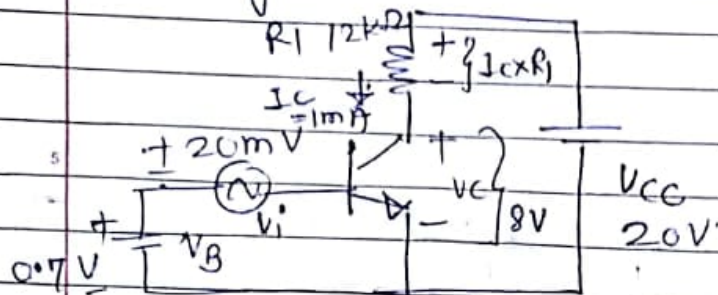 R1 12kΩ
+
} Ic×R1
-
Ic
=1mA
5
± 20mV
+
Vc
Vi
8V
-
VCC
20V
+
VB
0.7V
-